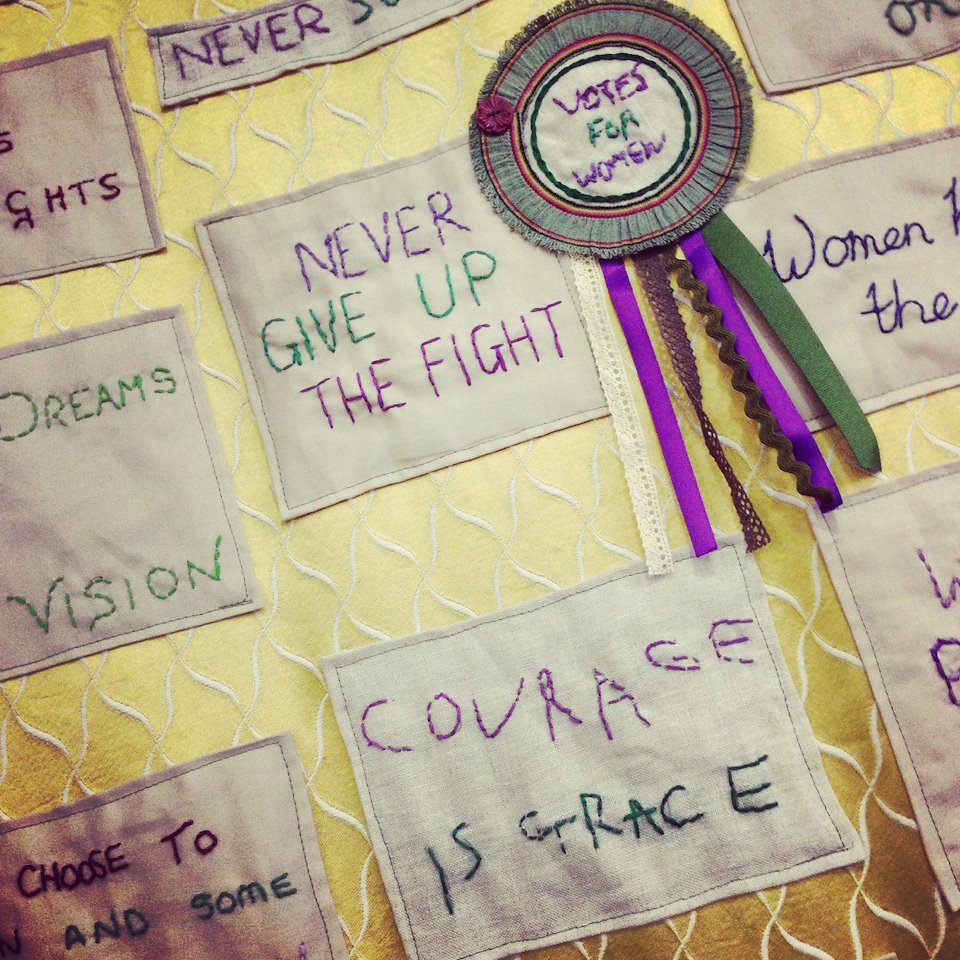 NEVER
ON
VOTES
FOR
WOMEN
GHTS
NEVER
GIVE UP
THE FIGHT
Women
the
DREAMS
VISION
COURAGE
IS GRACE
CHOOSE TO
AND SOME